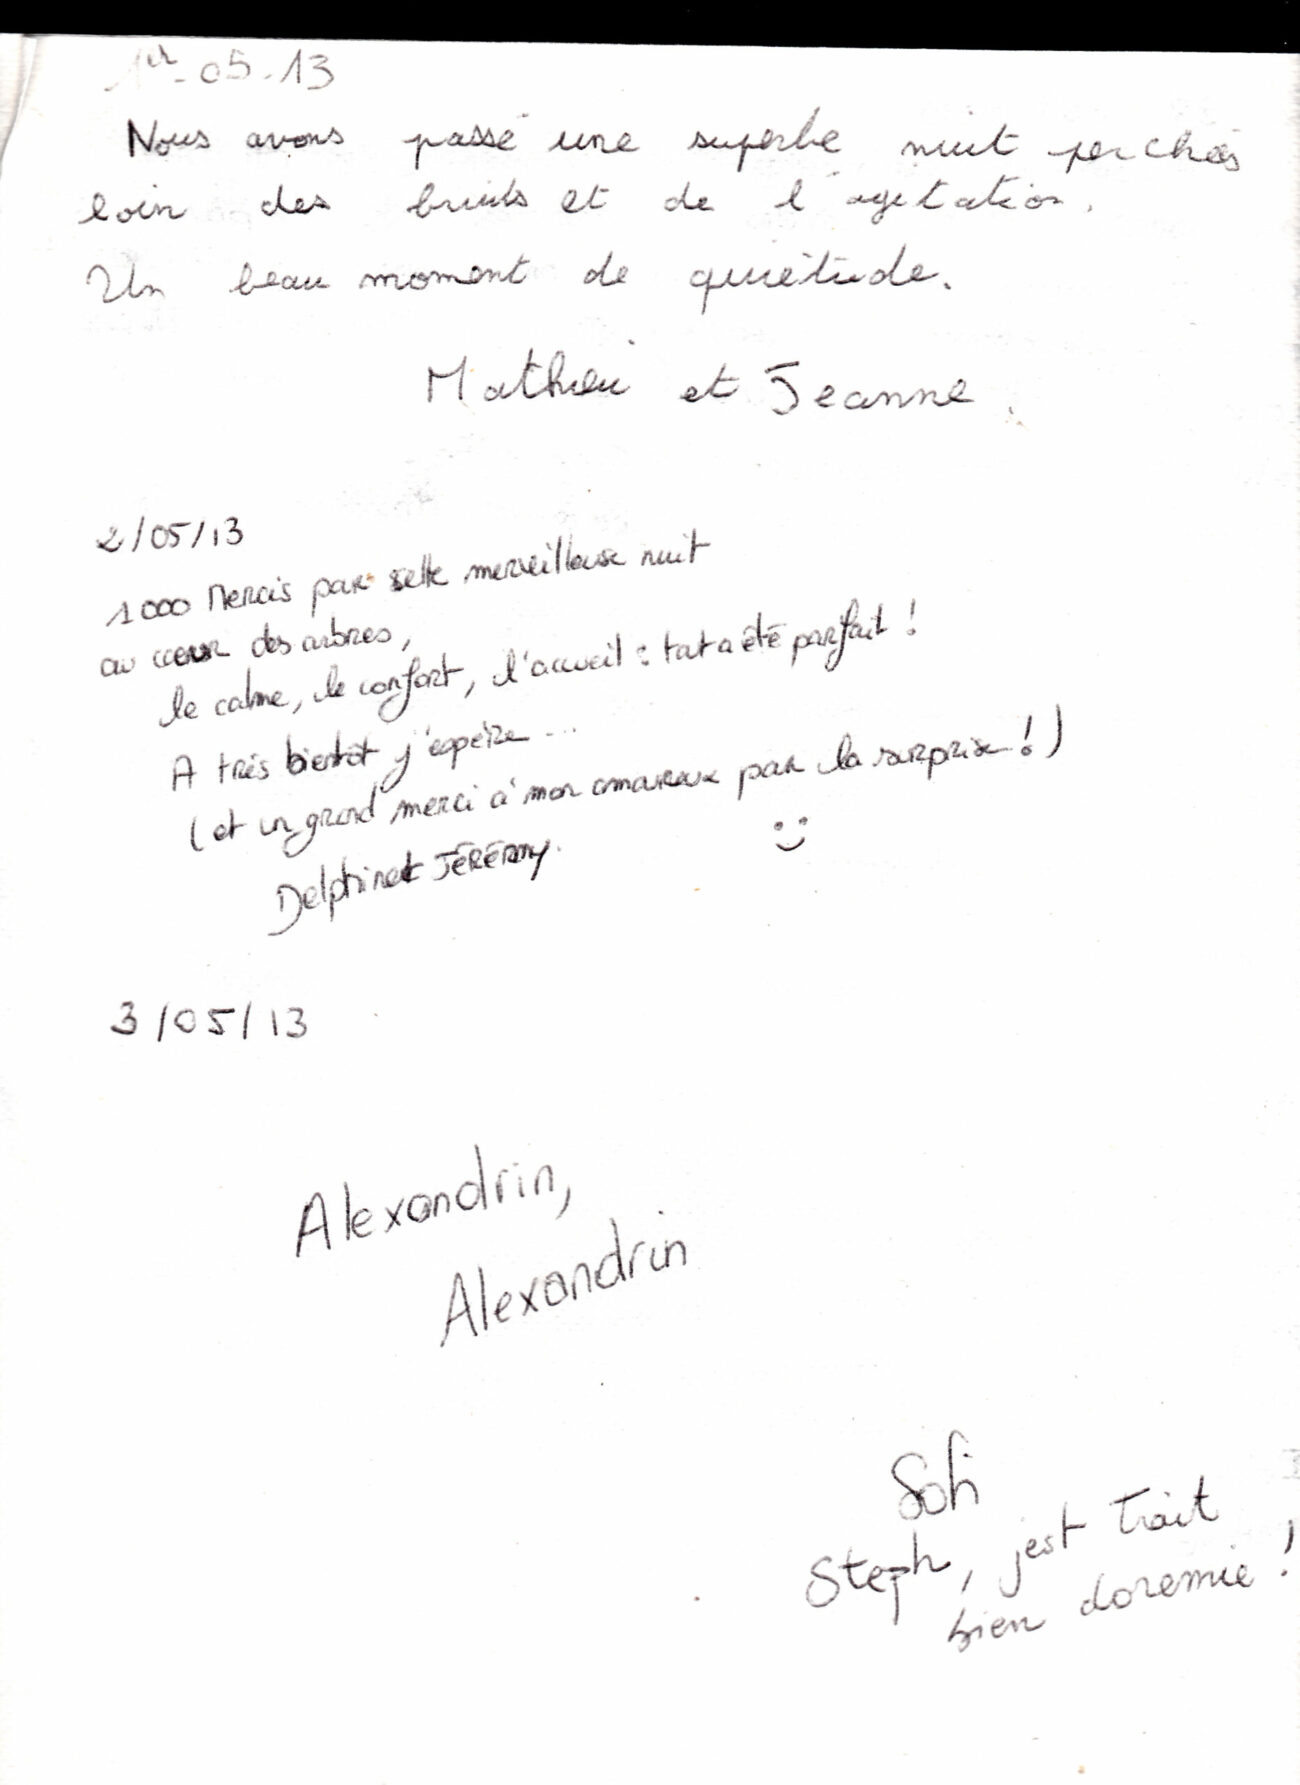 1er-05-13
Nous avons passé une superbe nuit perchés
loin des bruits et de l'agitation.
Un beau moment de quiétude.
Mathieu et Jeanne.
2/05/13
1000 Mercis par sette merveilleuse nuit
au coeur des arbres,
le calme, le confort, l'accueil : tout a été parfait !
A très bientôt j'espère...
(et un grand merci à mon amoureux par la surprise !)
Delphine et JÉRÉMY.
3/05/13
Alexandrin,
Alexandrin
Sofi
Steph, jest trait
bien doremie !